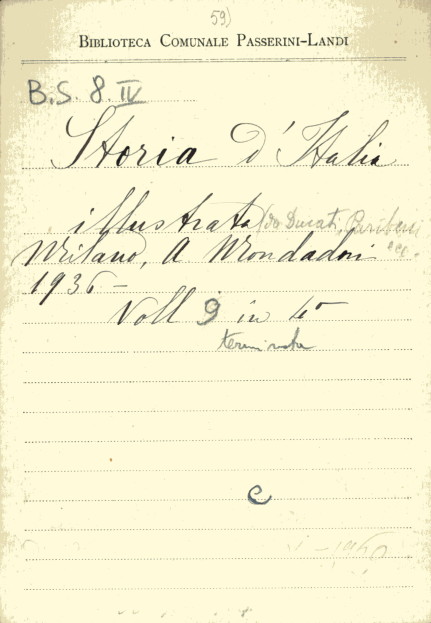 59)
BIBLIOTECA COMUNALE PASSERINI-LANDI
B.S. 8. IV
Storia d'Italia
illustrata (da Ducati, Paribeni
ecc.
Milano, A Mondadori
1936 -
Voll 9 in 4°
terminata
C